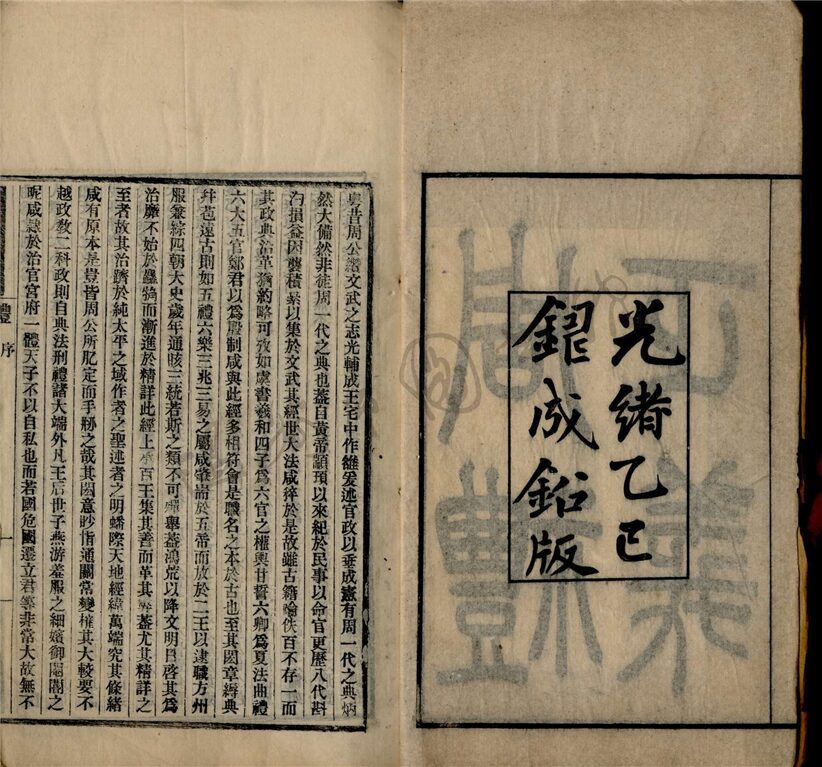 光緒乙巳
成鉛版
粵昔周公纘文武之志光輔成王宅中作雒爰述官政以垂成憲有周一代之典炳
然大備然非徒周一代之典也蓋自黃帝顓頊以來紀於民事以命官更歷八代斟
汋損益因襲積絫以集於文武其經世大法咸稡於是故雖古籍淪佚百不存一而
其政典沿革猶約略可攷如虞書羲和四子爲六官之權輿甘誓六卿爲夏法曲禮
六大五官鄭君以爲殷制咸與此經多相符會是職名之本於古也至其閎章縟典
幷苞遠古則如五禮六樂三兆三易之屬咸肇耑於五帝而放於二王以逮職方州
服兼綜四朝大史歲年通晐三統若斯之類不可殫舉蓋鴻荒以降文明日啓其爲
治靡不始於麤觕而漸進於精詳此經上承百王集其善而革其弊蓋尤其精詳之
至者故其治躋於純太平之域作者之聖述者之明蟠際天地經緯萬端究其條緒
咸有原本是豈皆周公所肊定而手剏之哉其閎意眇恉通關常變榷其大較要不
越政敎二科政則自典法刑禮諸大端外凡王后世子燕游羞服之細嬪御閽閹之
昵咸隸於治官宮府一體天子不以自私也而若國危國遷立君等非常大故無不
禮 序